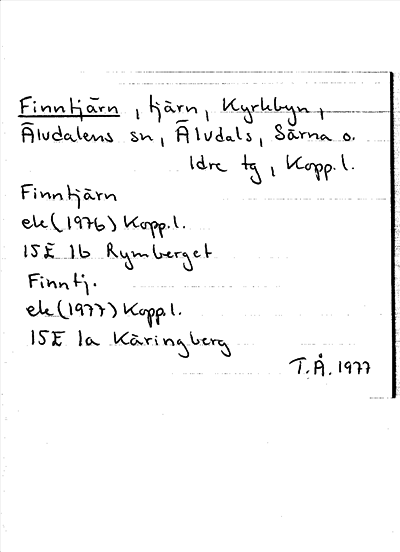 Finntjärn, tjärn, Kyrkbyn,
Älvdalens sn, Älvdals, Särna o.
Idre tg, Kopp.l.
Finntjärn
ek(1976) Kopp.l.
15E 1b Rymberget
Finntj.
ek(1977) Kopp.l.
15E 1a Käringberg
T.Å. 1977